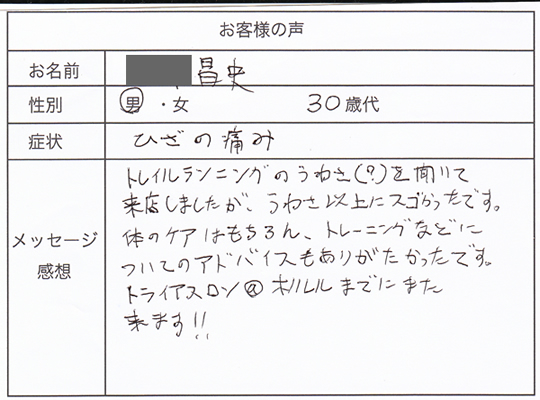 お客様の声
お名前 昌史
性別 男・女 30歳代
症状 ひざの痛み
メッセージ
感想
トレイルランニングのうわさ(?)を聞いて
来店しましたが、うわさ以上にスゴかったです。
体のケアはもちろん、トレーニングなどに
ついてのアドバイスもありがたかったです。
トライアスロン@ホノルルまでにまた
来ます!!